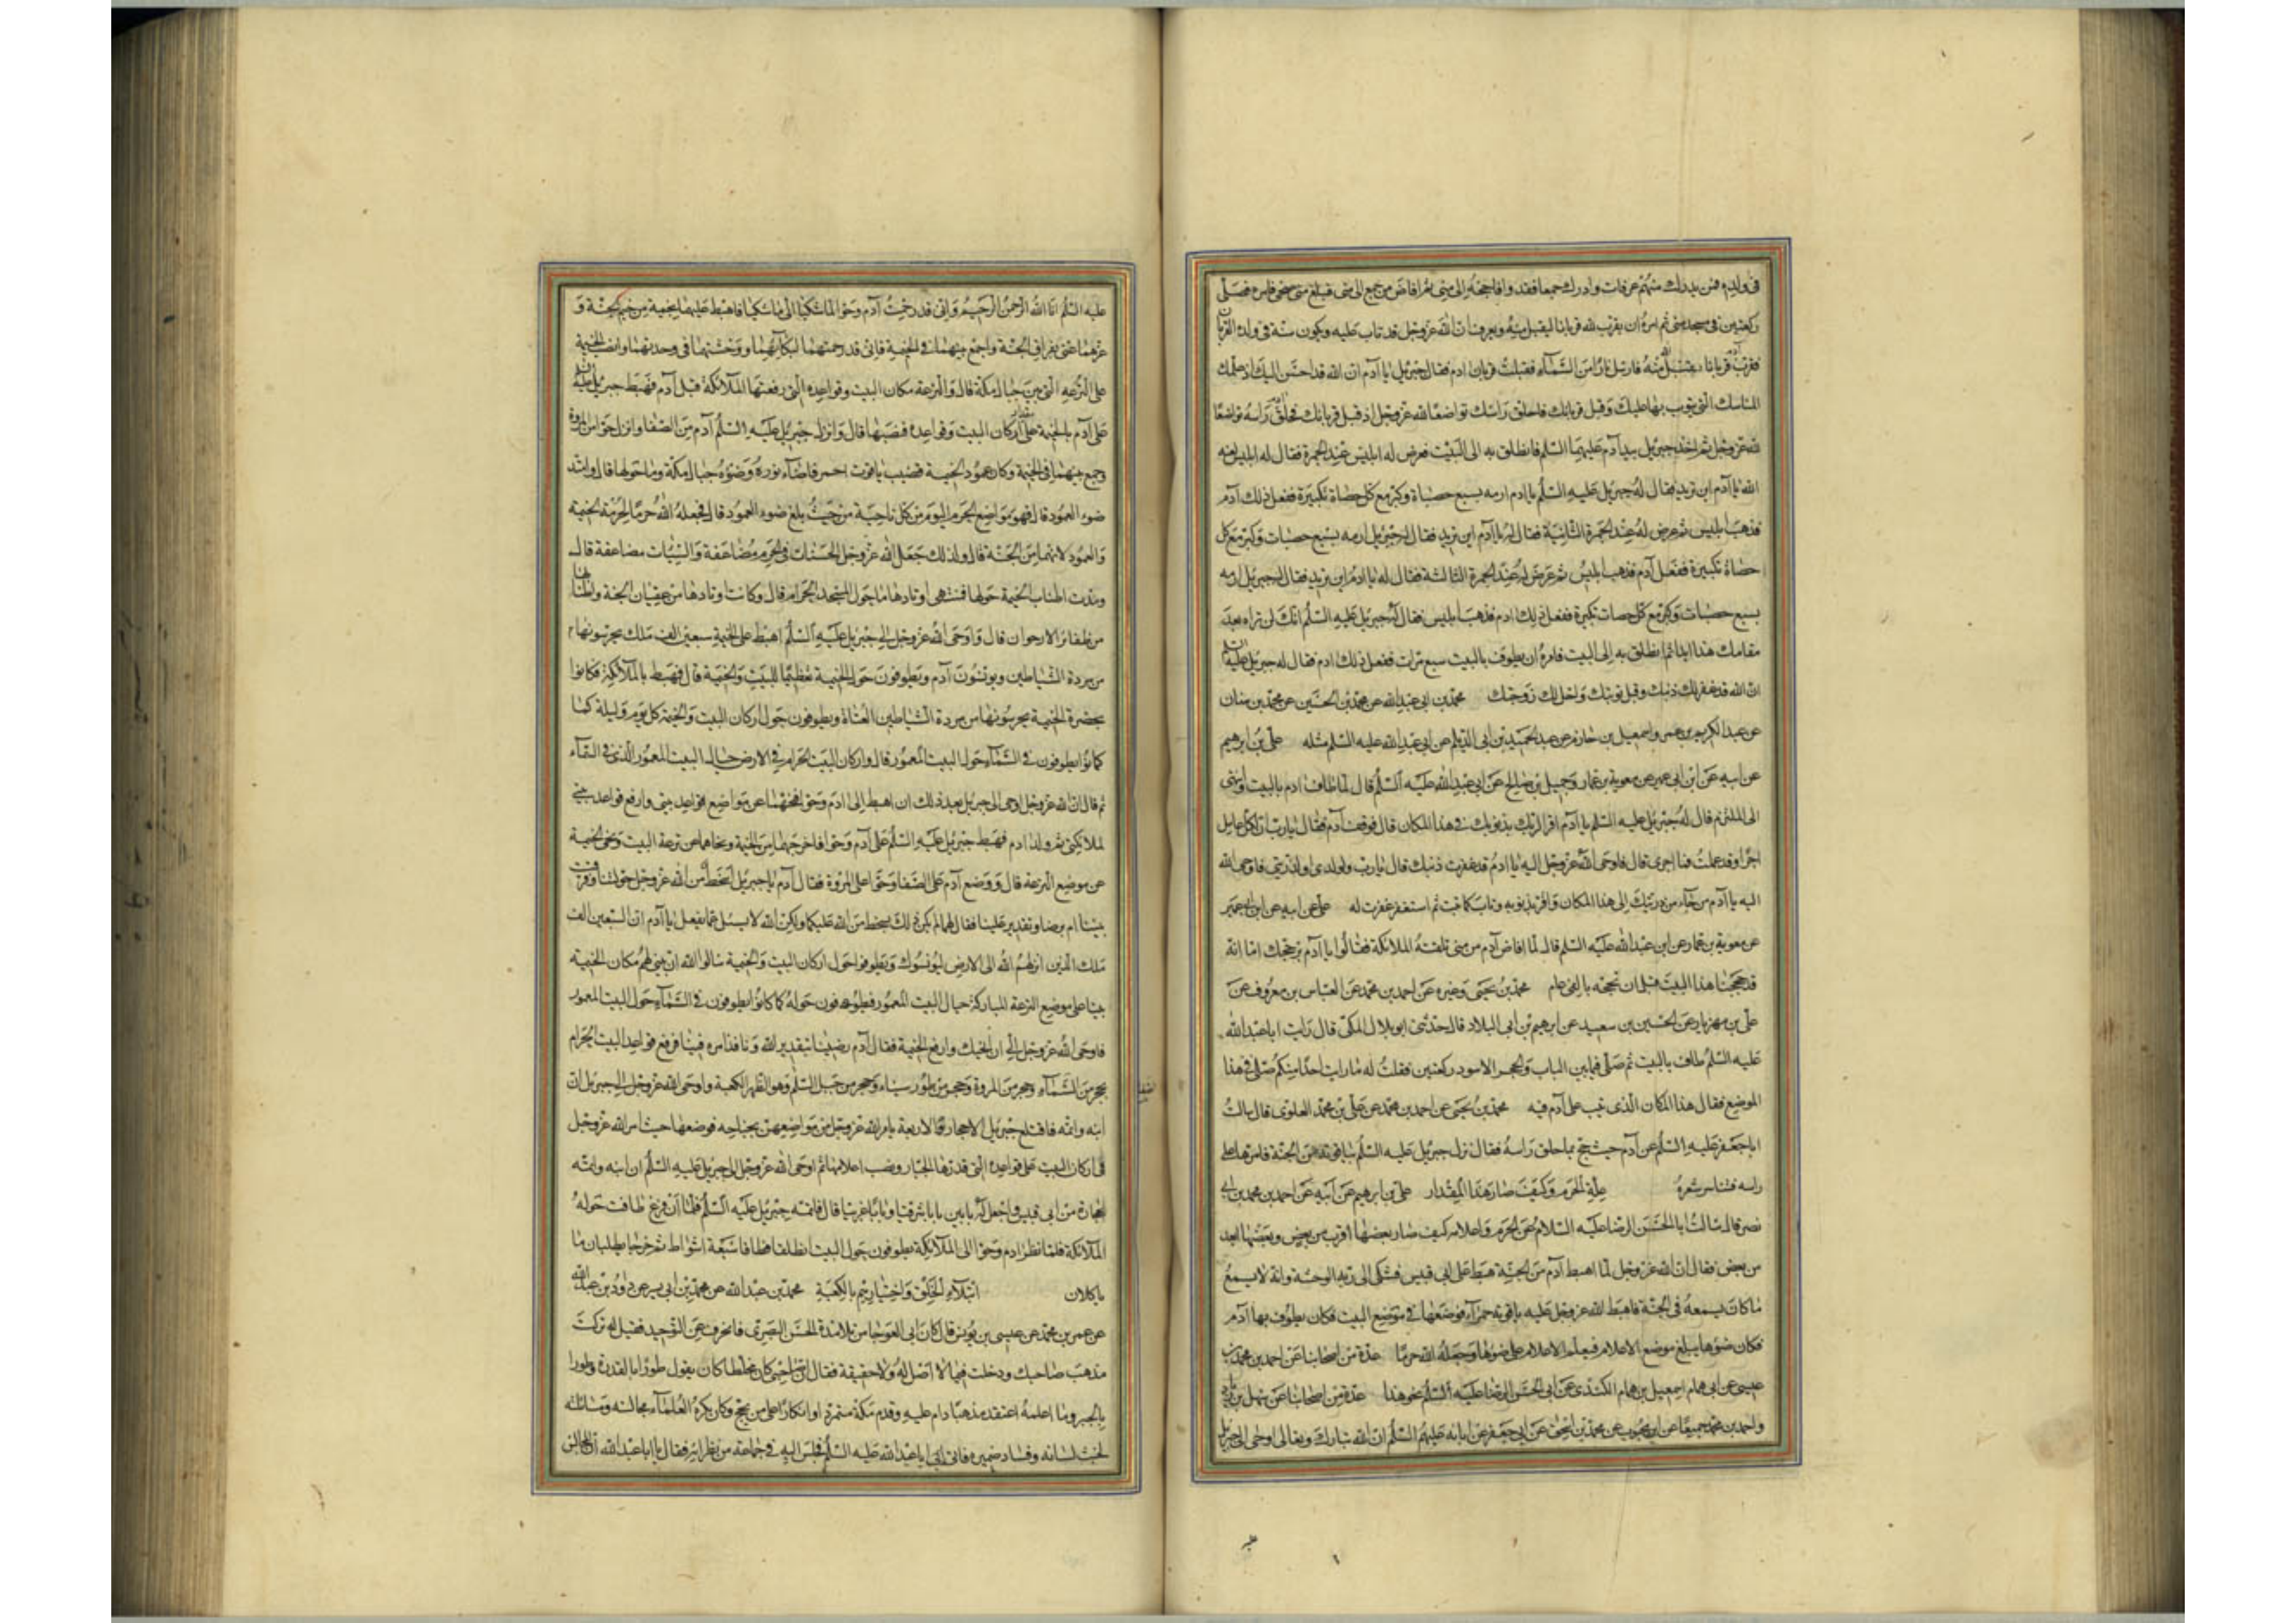 في ولده فمن يدرك منهم عرفات وادرك جمعا فقد وافا حجه الى منى ثم افاض من جمع الى منى فبلغ منى ضحى فامره فصلى
ركعتين في مسجد منى ثم امره ان يقرب لله قربانا ليقبل منه ويعرف ان الله عز وجل قد تاب عليه ويكون سنة في ولده القربان
فقرب آدم قربانا فقبل الله منه فارسل نارا من السماء فقبلت قربان ادم فقال جبريل يا آدم ان الله قد احسن اليك اذ علمك
المناسك التي يتوب بها عليك وقبل قربانك فاحلق راسك تواضعا لله عز وجل اذ قبل قربانك فحلق آدم راسه تواضعا
لله عز وجل ثم اخذ جبريل بيد آدم عليهما السلم فانطلق به الى البيت فعرض له ابليس عند الجمرة فقال له ابليس لعنه
الله يا آدم اين تريد فقال له جبريل عليه السلم يا ادم ارمه بسبع حصياة وكبر مع كل حصاة تكبيرة ففعل ذلك آدم
فذهب ابليس ثم عرض له عند الجمرة الثانية فقال له يا آدم اين تريد فقال له جبريل ارمه بسبع حصيات وكبر مع كل
حصاة تكبيرة ففعل آدم فذهب ابليس ثم عرض له عند الجمرة الثالثة فقال له يا ادم اين تريد فقال له جبريل ارمه
بسبع حصيات وكبر مع كل حصات تكبيرة ففعل ذلك ادم فذهب ابليس فقال له جبريل عليه السلم انك لن تراه بعد
مقامك هذا ابدا ثم انطلق به الى البيت فامره ان يطوف بالبيت سبع مرات ففعل ذلك ادم فقال له جبريل عليه السلم
ان الله قد غفر لك ذنبك وقبل توبتك واحل لك زوجتك محمد بن ابي عبد الله عن محمد بن الحسين عن محمد بن سنان
عن عبد الكريم بن عمرو واسمعيل بن حازم عن عبد الحميد بن ابي الديلم عن ابي عبد الله عليه السلم مثله علي بن ابرهيم
عن ابيه عن ابن ابي عمير عن معوية بن عمار وجميل بن صالح عن ابي عبد الله عليه السلم قال لما طاف ادم بالبيت وانتهى
الى الملتزم قال له جبريل عليه السلم يا آدم اقر لربك بذنوبك في هذا المكان قال فوقف آدم فقال يا رب ان لكل عامل
اجرا وقد عملت فما اجري قال فاوحى الله عز وجل اليه يا ادم قد غفرت ذنبك قال يا رب ولولدي او لذريتي فاوحى الله
اليه يا آدم من جاء من ذريتك الى هذا المكان واقر بذنوبه وتاب كما تبت ثم استغفر غفرت له علي عن ابيه عن ابن ابي عمير
عن معوية بن عمار عن ابي عبد الله عليه السلم قال لما افاض آدم من منى تلقته الملائكة فقالوا يا آدم بر حجك اما انه
قد حججنا هذا البيت قبل ان تحجه بالفي عام محمد بن يحيى وغيره عن احمد بن محمد عن العباس بن معروف عن
علي بن مهزيار عن الحسين بن سعيد عن ابرهيم بن ابي البلاد قال حدثني ابو بلال المكي قال رايت ابا عبد الله
عليه السلم طاف بالبيت ثم صلى فيما بين الباب والحجر الاسود ركعتين فقلت له ما رايت احدا منكم صلى في هذا
الموضع فقال هذا المكان الذي تيب على آدم فيه محمد بن يحيى عن احمد بن محمد عن علي بن محمد العلوي قال سالت
ابا جعفر عليه السلم عن آدم حيث حج بما حلق راسه فقال نزل جبريل عليه السلم بياقوتة من الجنة فامرها على
راسه فتناثر شعره علة الحرم وكيف صار هذا المقدار علي بن ابرهيم عن ابيه عن احمد بن محمد بن ابي
نصر قال سالت ابا الحسن الرضا عليه السلام عن الحرم واعلامه كيف صار بعضها اقرب من بعض وبعضها ابعد
من بعض فقال ان الله عز وجل لما اهبط آدم من الجنة هبط على ابي قبيس فشكى الى ربه الوحشة وانه لا يسمع
ما كان يسمعه في الجنة فاهبط الله عز وجل عليه ياقوتة حمراء فوضعها في موضع البيت فكان يطوف بها آدم
فكان ضوؤها يبلغ موضع الاعلام فيعلم الاعلام على ضوئها وجعله الله حرما عدة من اصحابنا عن احمد بن محمد بن
عيسى عن ابي همام اسمعيل بن همام الكندي عن ابي الحسن الرضا عليه السلم نحو هذا عدة من اصحابنا عن سهل بن زياد
واحمد بن محمد جميعا عن ابن محبوب عن محمد بن اسحق عن ابي جعفر عن ابائه عليهم السلم ان الله تبارك وتعالى اوحى الى جبريل
عليه السلم انا الله الرحمن الرحيم واني قد رحمت آدم وحوا لما شكيا الى ما شكيا فاهبط عليهما بخيمة من خيم الجنة و
عزهما عني بفراق الجنة واجمع بينهما في الخيمة فاني قد رحمتهما لبكائهما ووحشتهما في وحدتهما وانصب الخيمة
على الترعة التي بين جبال مكة قال والترعة مكان البيت وقواعده التي رفعتها الملائكة قبل آدم فهبط جبريل عليه السلم
على آدم بالخيمة على مقدار اركان البيت وقواعده فنصبها قال وانزل جبريل عليه السلم آدم من الصفا وانزل حوا من المروة
وجمع بينهما في الخيمة وكان عمود الخيمة قضيب ياقوت احمر فاضاء نوره وضوؤه جبال مكة وما حولها قال وامتد
ضوء العمود قال فهو مواضع الحرم اليوم من كل ناحية من حيث بلغ ضوء العمود قال فجعله الله حرما لحرمة الخيمة
والعمود لانهما من الجنة قال ولذلك جعل الله عز وجل الحسنات في الحرم مضاعفة والسيئات مضاعفة قال
ومدت اطناب الخيمة حولها فمنتهى اوتادها ما حول المسجد الحرام قال وكانت اوتادها من عقيان الجنة واطنابها
من ظفائر الارجوان قال واوحى الله عز وجل الى جبريل عليه السلم اهبط على الخيمة سبعين الف ملك يحرسونها
من مردة الشياطين ويونسون آدم ويطوفون حول الخيمة تعظيما للبيت والخيمة قال فهبط بالملائكة فكانوا
بحضرة الخيمة يحرسونها من مردة الشياطين العتاة ويطوفون حول اركان البيت والخيمة كل يوم وليلة كما
كانوا يطوفون في السماء حول البيت المعمور قال واركان البيت الحرام في الارض حيال البيت المعمور الذي في السماء
ثم قال ان الله عز وجل اوحى الى جبريل بعد ذلك ان اهبط الى ادم وحوا فنحهما عن مواضع قواعد بيتي وارفع قواعد بيتي
لملائكتي ثم ولد ادم فهبط جبريل عليه السلم على آدم وحوا فاخرجهما من الخيمة ونحاهما عن ترعة البيت ونحى الخيمة
عن موضع الترعة قال ووضع آدم على الصفا وحوا على المروة فقال آدم يا جبريل ابسخط من الله عز وجل حولتنا وفرقت
بيننا ام برضا وتقدير علينا فقال لهما لم يكن ذلك بسخط من الله عليكما ولكن الله لا يسئل عما يفعل يا آدم ان السبعين الف
ملك الذين انزلهم الله الى الارض ليونسوك ويطوفوا حول اركان البيت والخيمة سالوا الله ان يبني لهم مكان الخيمة
بيتا على موضع الترعة المباركة حيال البيت المعمور فيطوفون حوله كما كانوا يطوفون في السماء حول البيت المعمور
فاوحى الله عز وجل الي ان انحيك وارفع الخيمة فقال آدم رضينا بتقدير الله ونافذ امره فينا فرفع قواعد البيت الحرام
بحجر من الصفا وحجر من المروة وحجر من طور سيناء وحجر من جبل السلم وهو ظهر الكعبة واوحى الله عز وجل الى جبريل ان
ابنه واتمه فاقتلع جبريل الاحجار الاربعة بامر الله عز وجل من مواضعهن بجناحه فوضعها حيث امر الله عز وجل
في اركان البيت على قواعده التي قدرها الجبار ونصب اعلامها ثم اوحى الله عز وجل الى جبريل عليه السلم ان ابنه واتمه
بحجارة من ابي قبيس واجعل له بابين بابا شرقيا وبابا غربيا قال فاتمه جبريل عليه السلم فلما ان فرغ طافت حوله
الملائكة فلما نظر ادم وحوا الى الملائكة يطوفون حول البيت انطلقا فطافا سبعة اشواط ثم خرجا يطلبان ما
ياكلان ابتلاء الخلق واختبارهم بالكعبة محمد بن عبد الله عن محمد بن ابي يسر عن داود بن عبد الله
عن عمر بن محمد عن عيسى بن يونس قال كان ابن ابي العوجا من تلامذة الحسن البصري فانحرف عن التوحيد فقيل له تركت
مذهب صاحبك ودخلت فيما لا اصل له ولا حقيقة فقال ان صاحبي كان مخلطا كان يقول طورا بالقدر وطورا
بالجبر وما اعلمه اعتقد مذهبا دام عليه وقدم مكة متمردا وانكارا على من يحج وكان يكره العلماء مجالسته ومسائلته
لخبث لسانه وفساد ضميره فاتى ابا عبد الله عليه السلم فجلس اليه في جماعة من نظرائه فقال يا ابا عبد الله ان المجالس